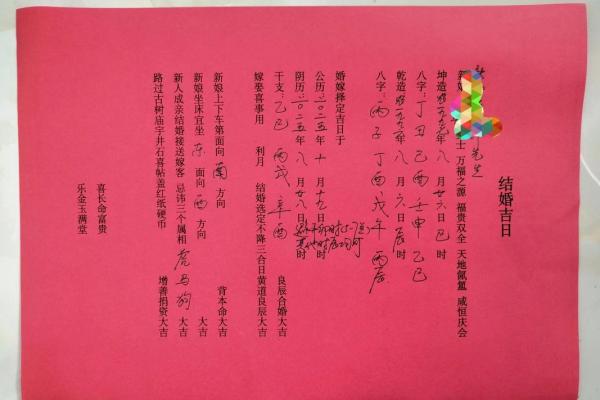 结婚吉日
先生
士 万福之源 福贵双全 天地氤氲 咸恒庆会
坤造 一九九七年 八 月 廿六 日 巳 时
八字：丁丑 己酉 壬申 乙巳
乾造 一九九六年 八 月 六 日 辰 时
八字：丙子 丁酉 戊午 丙辰
婚嫁择定吉日于
公历：二〇二五年 十 月 十九 日 卯时
阴历：二〇二五年 八 月 廿八 日 时
干支：乙巳 丙戌 辛酉 良辰合婚大吉
嫁娶喜事用 利月 结婚选定不降三合日黄道良辰大吉
新娘上下车第面向 南 方向 背本命大吉
新娘坐床宜坐 东 面向 西 方向 大吉
新人成亲结婚接送嫁客 忌讳三个属相 虎马狗 大吉
路过古树庙宇井石喜帖盖红纸硬币 增善捐资大吉
喜长命富贵
乐金玉满堂